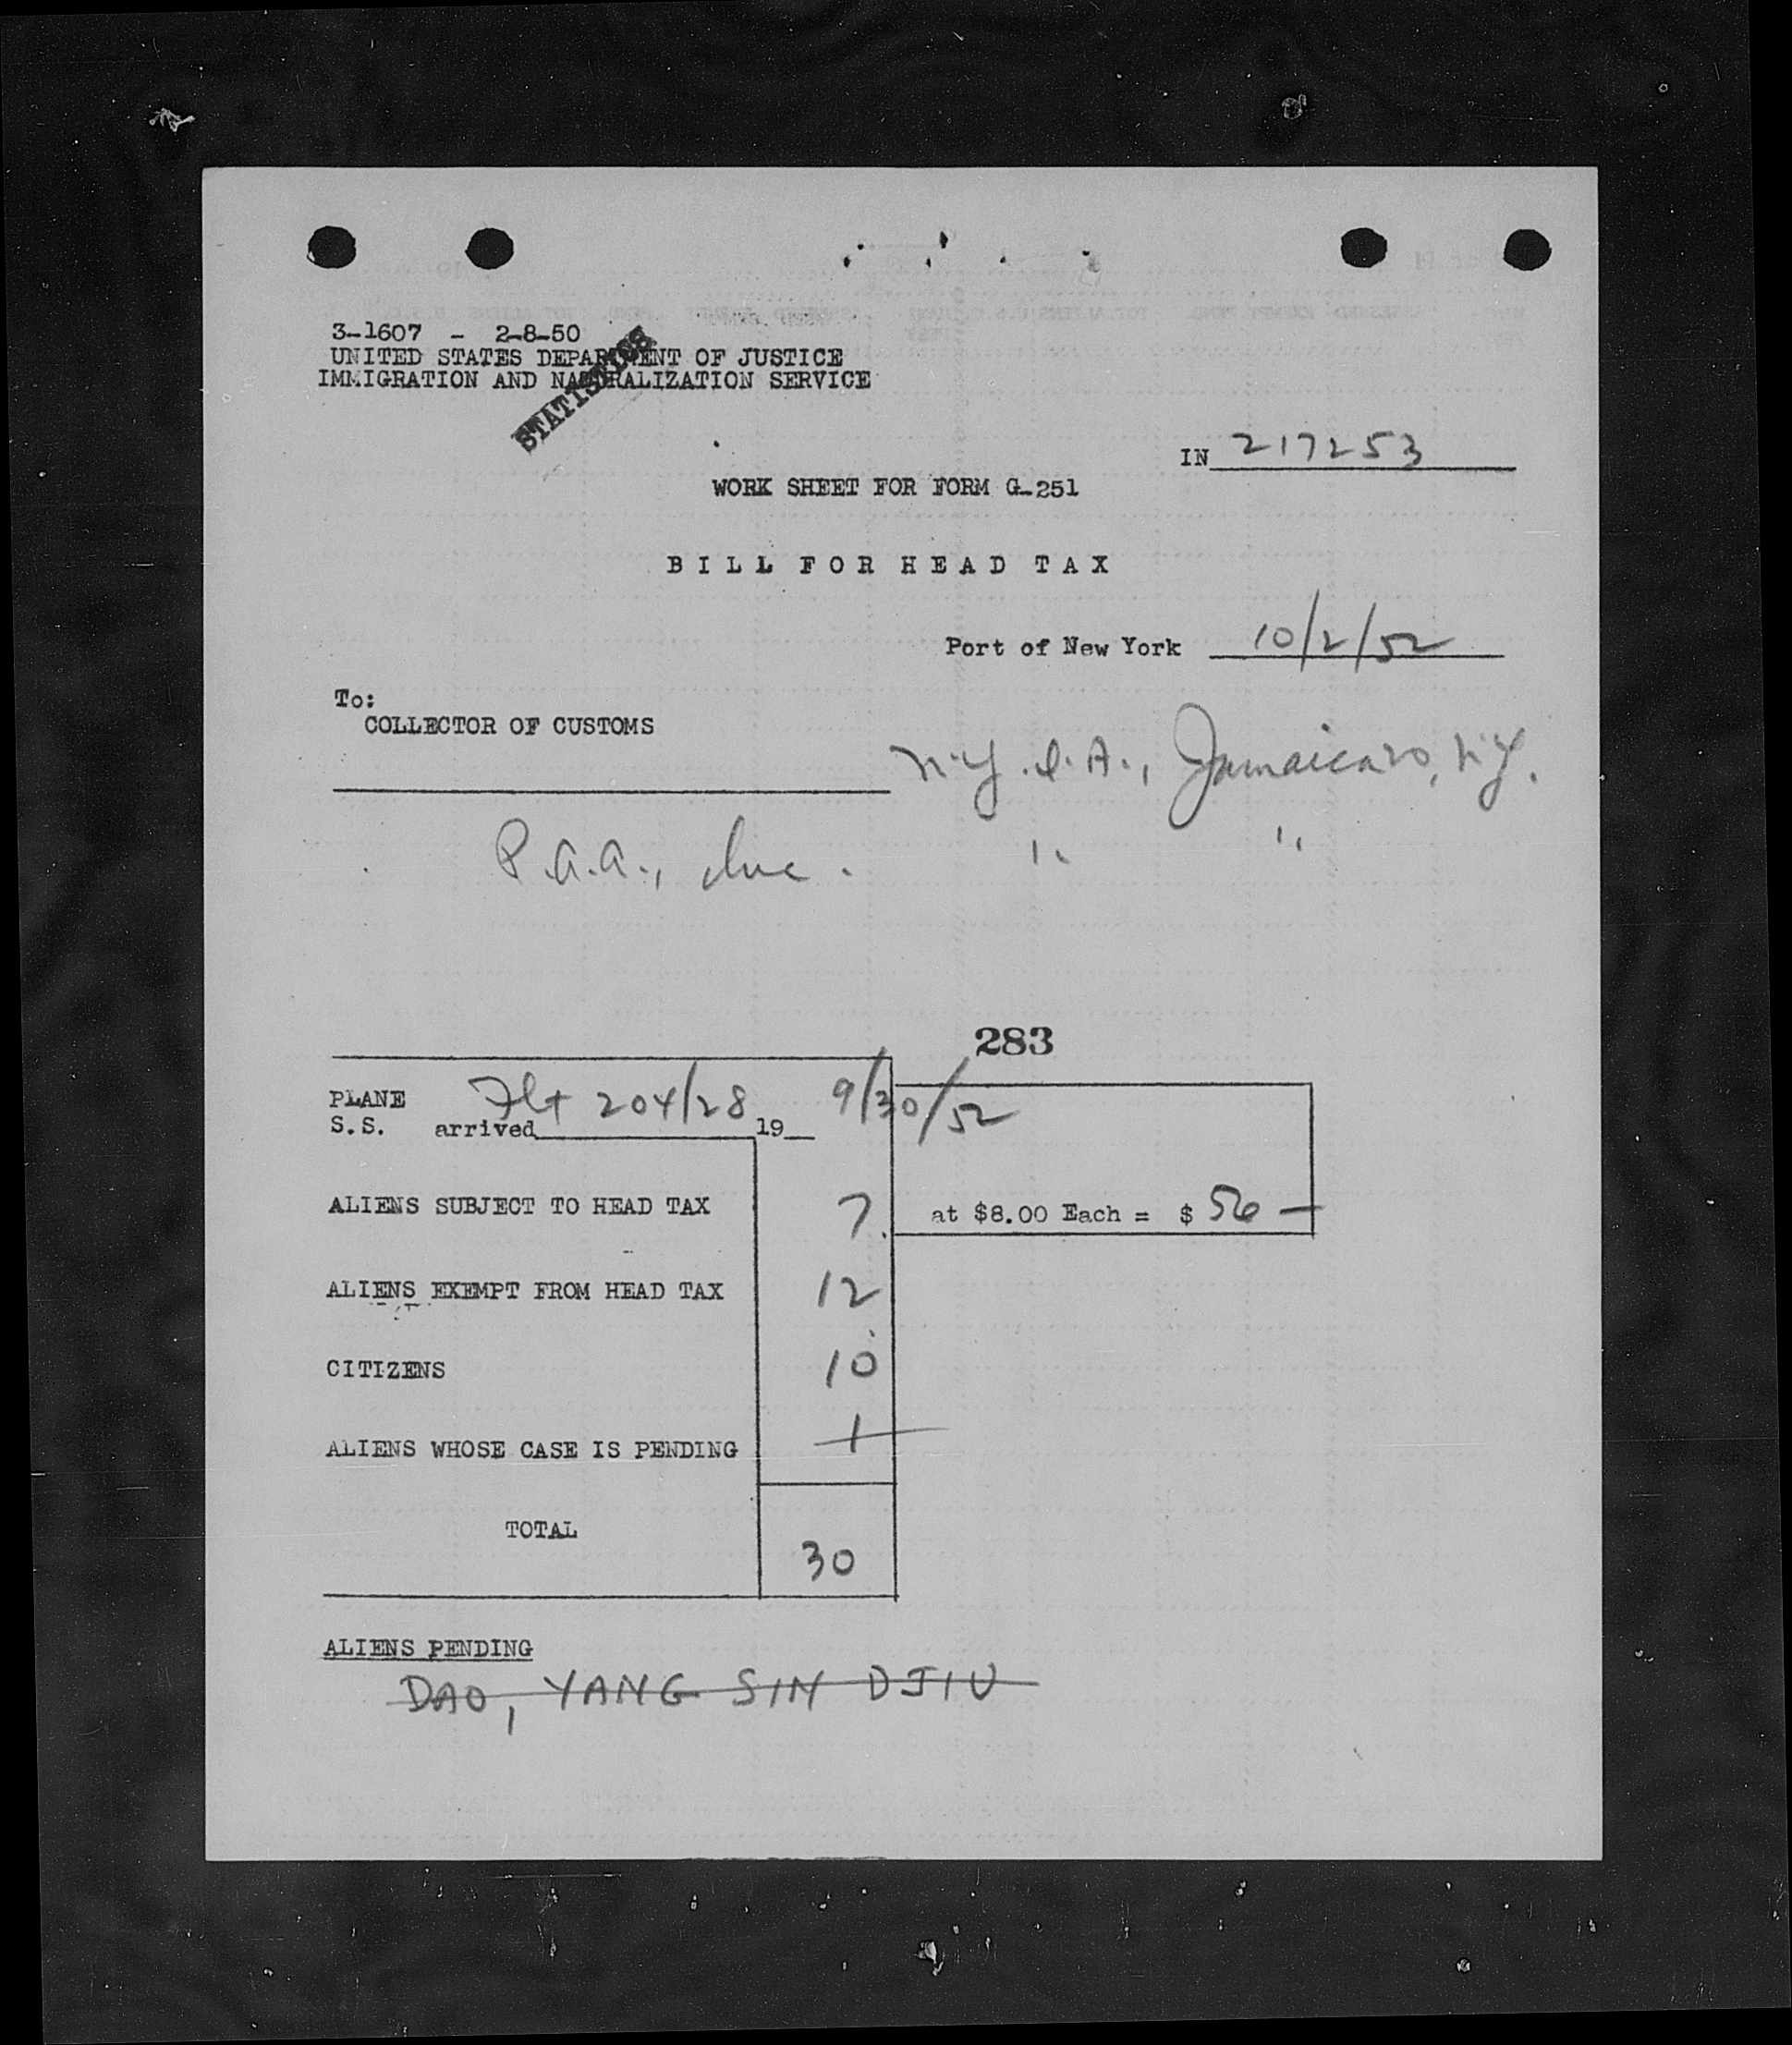 3-1607 - 2-8-50
UNITED STATES DEPARTMENT OF JUSTICE
IMMIGRATION AND NATURALIZATION SERVICE
STATISTICS
IN 217253
WORK SHEET FOR FORM G-251
BILL FOR HEAD TAX
Port of New York 10/2/52
To:
COLLECTOR OF CUSTOMS
N.Y.I.A., Jamaica 30, N.Y.
P.A.A., Inc. " "
283
PLANE Flt 204/28 9/30/52
S.S. arrived 19
ALIENS SUBJECT TO HEAD TAX 7 at $8.00 Each = $ 56 —
ALIENS EXEMPT FROM HEAD TAX 12
CITIZENS 10
ALIENS WHOSE CASE IS PENDING 1
TOTAL 30
ALIENS PENDING
DAO, YANG SIN DJIU